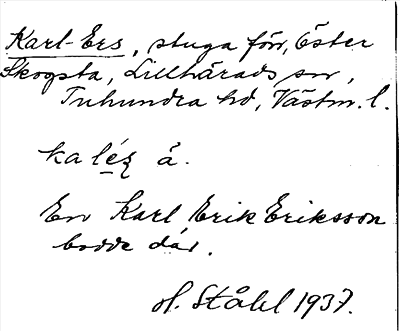 Karl-Ers, stuga förr, Öster
Skogsta, Lillhärads sn,
Tuhundra hd, Västm. l.
ka léʒ å.
En Karl Erik Eriksson
bodde där.
H. Ståhl 1937.